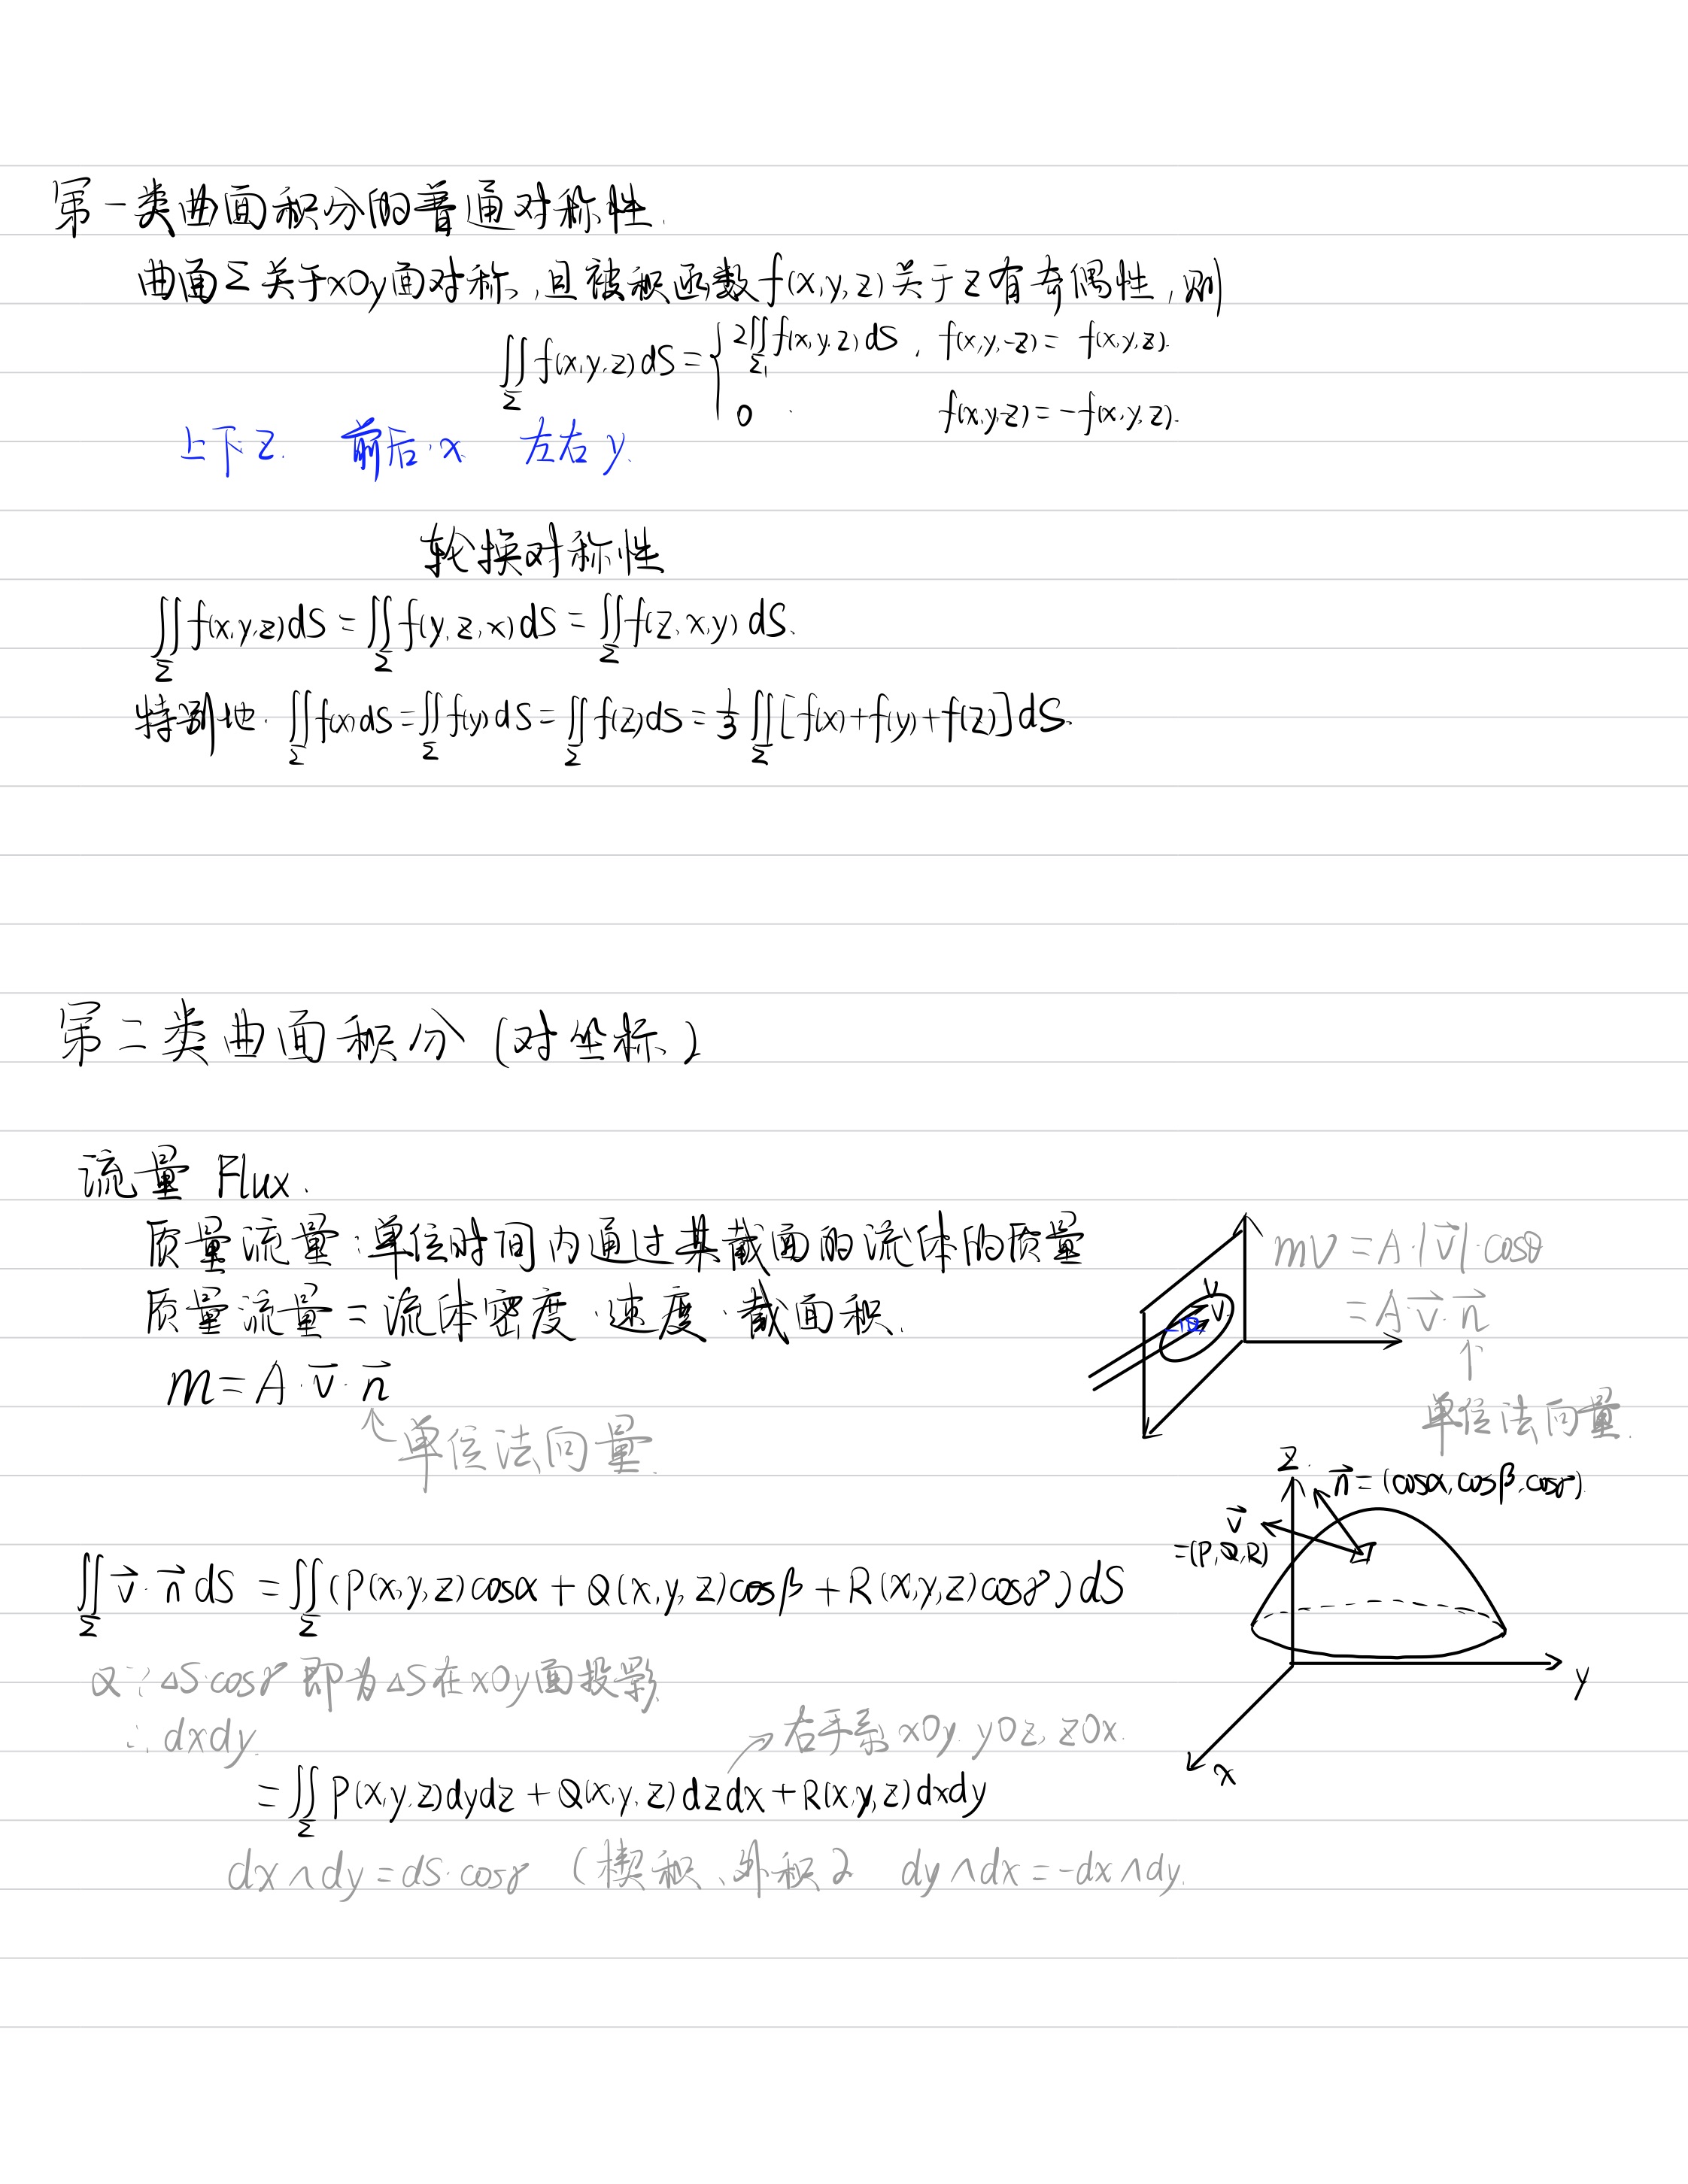 第一类曲面积分的普通对称性.
曲面Σ关于xOy面对称,且被积函数f(x,y,z)关于z有奇偶性,则
∬_Σ f(x,y,z)dS = { 2∬_Σ₁ f(x,y,z)dS, f(x,y,-z) = f(x,y,z).
0. f(x,y,-z) = -f(x,y,z).
上下z. 前后x. 左右y.
轮换对称性
∬_Σ f(x,y,z)dS = ∬_Σ f(y,z,x)dS = ∬_Σ f(z,x,y)dS.
特别地. ∬_Σ f(x)dS = ∬_Σ f(y)dS = ∬_Σ f(z)dS = 1/3 ∬_Σ [f(x)+f(y)+f(z)]dS.
第二类曲面积分(对坐标)
流量 Flux.
质量流量:单位时间内通过某截面的流体的质量
质量流量=流体密度·速度·截面积.
m=A·v⃗·n⃗
↑单位法向量.
mv = A·|v⃗|·cosθ
= A v⃗·n⃗
↑
单位法向量.
v⃗
z.
n⃗=(cosα,cosβ,cosγ).
v⃗
=(P,Q,R)
y
x
∬_Σ v⃗·n⃗ dS = ∬_Σ (P(x,y,z)cosα + Q(x,y,z)cosβ + R(x,y,z)cosγ)dS
∵ ΔS·cosγ 即为ΔS在xOy面投影
∴ dxdy.
→右手系 xOy. yOz, zOx.
= ∬_Σ P(x,y,z)dydz + Q(x,y,z)dzdx + R(x,y,z)dxdy
dx∧dy = dS·cosγ (楔积、外积) dy∧dx = -dx∧dy.